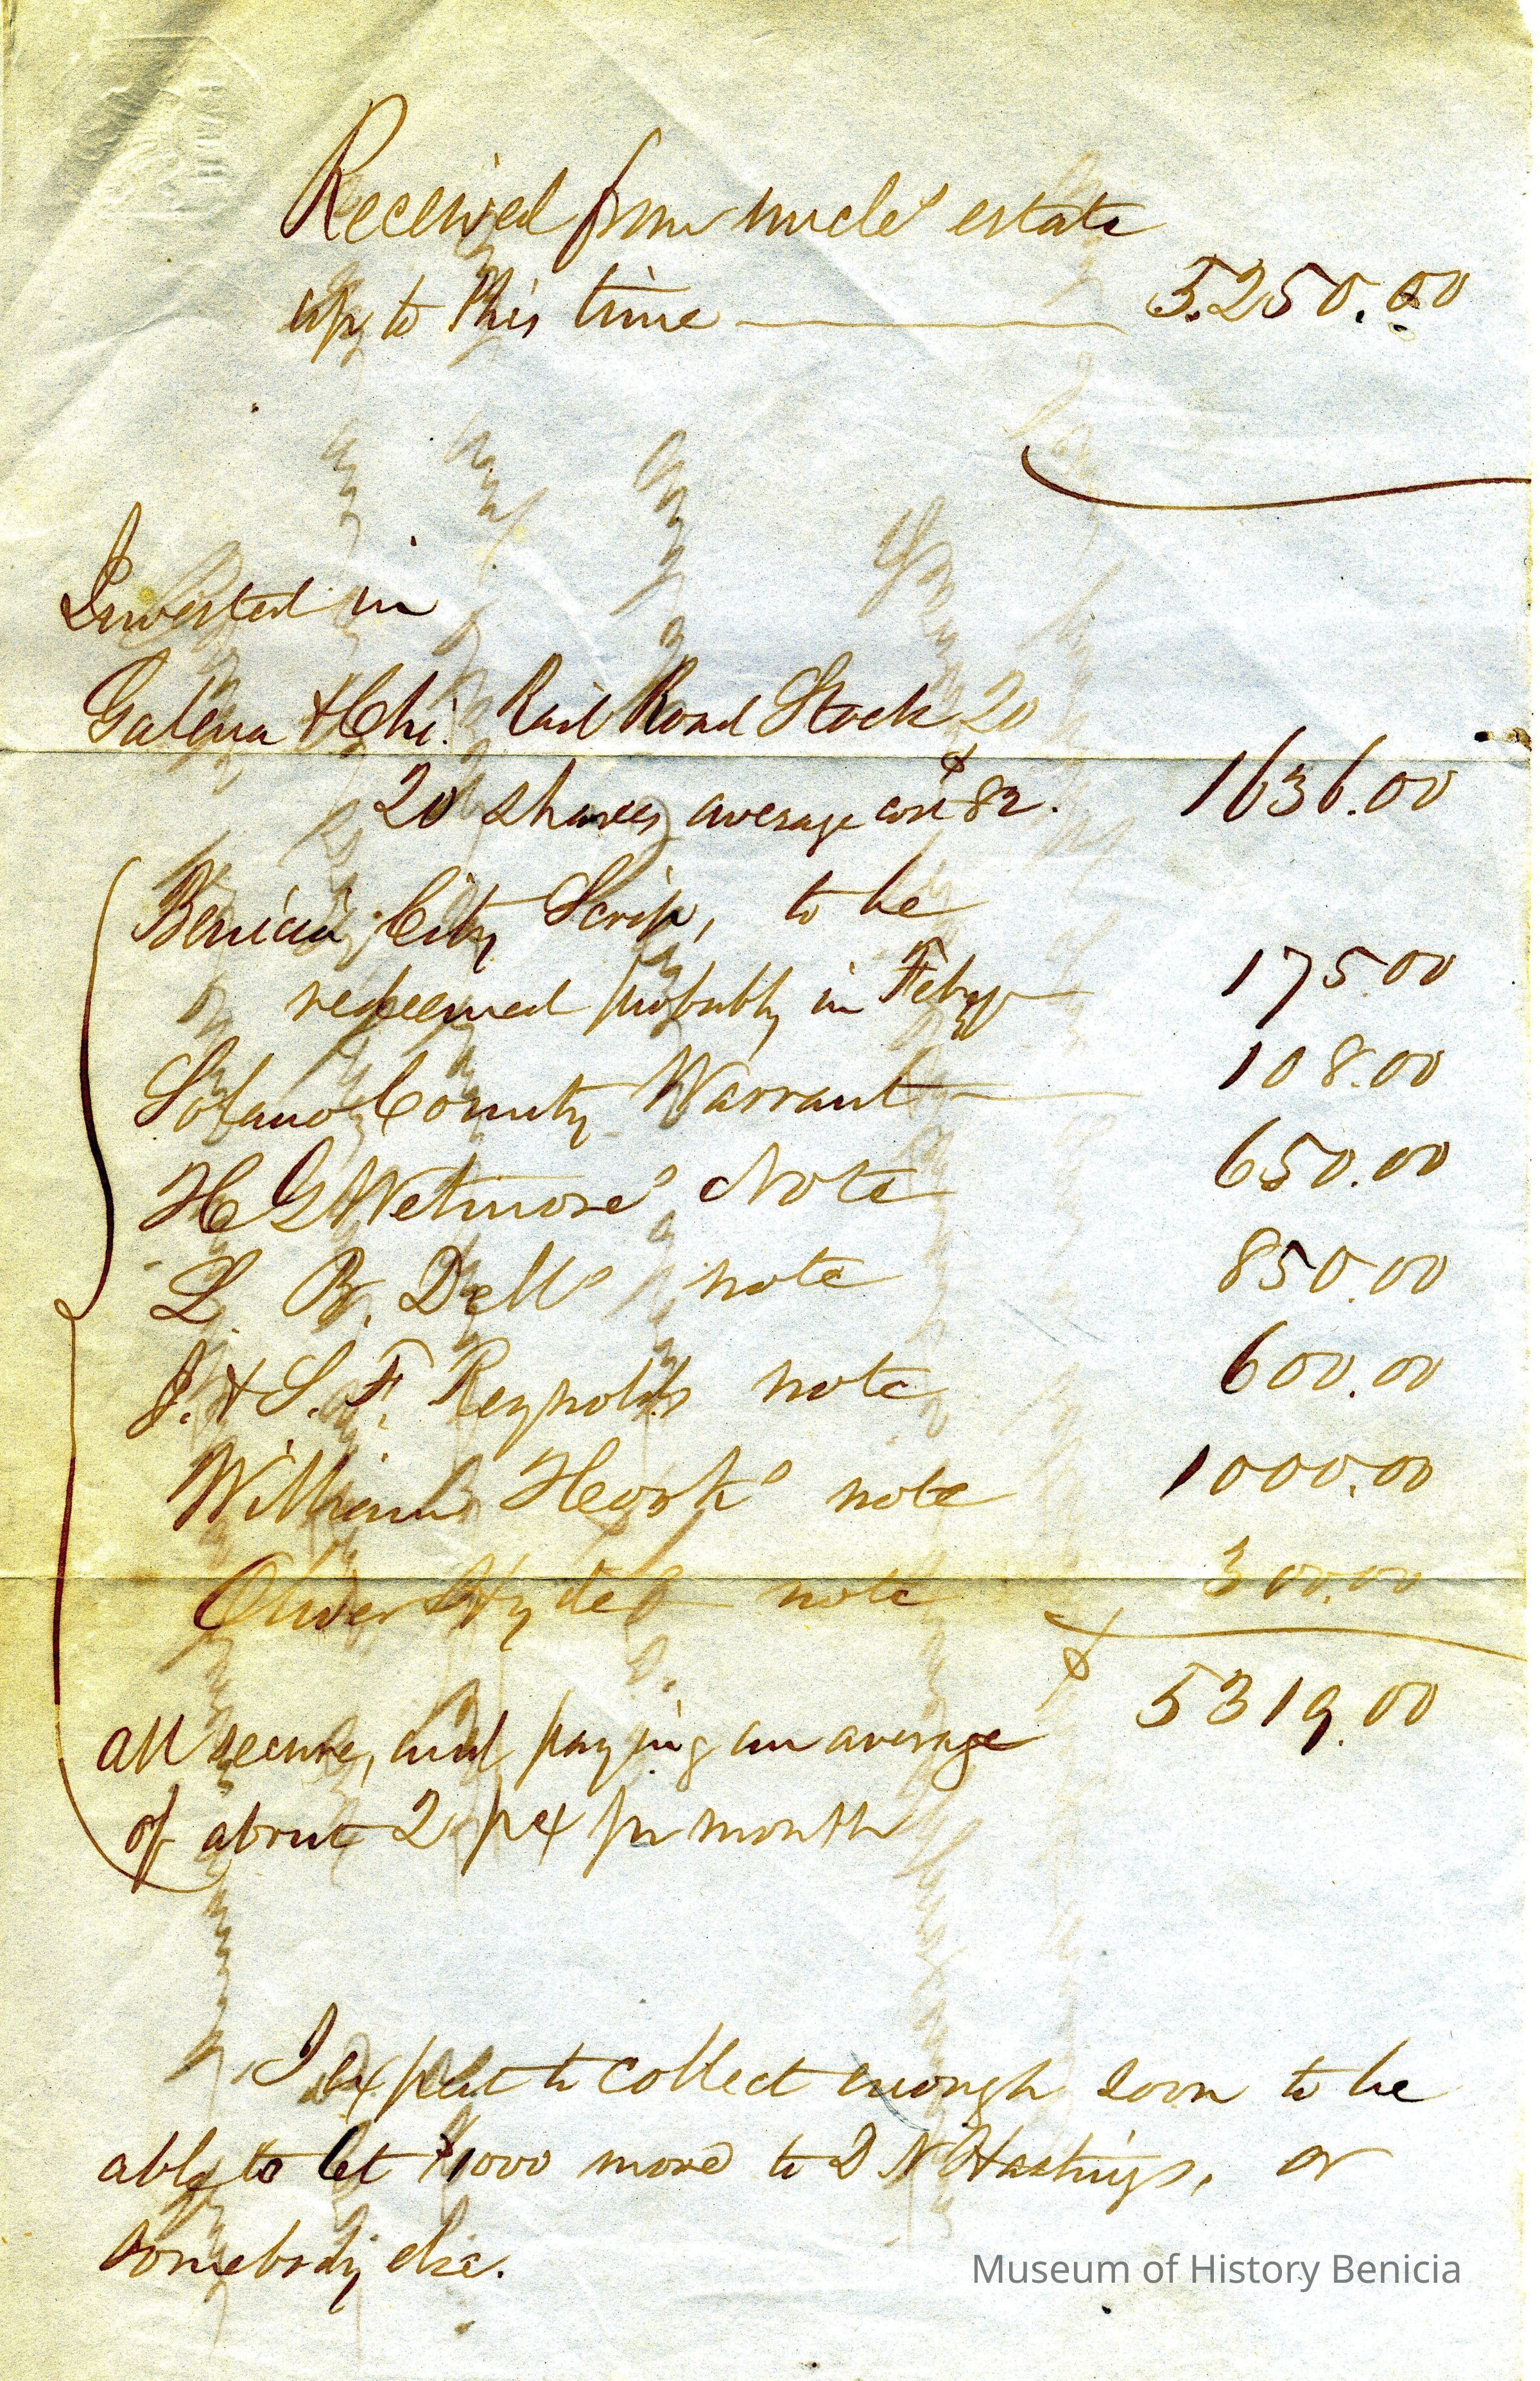 Received from uncle's estate
up to this time 5.250.00
Invested in
Galena & Chi. Rail Road Stock 20
20 shares average cost $82. 1636.00
Benicia City Scrip, to be
redeemed probably in Feby 175.00
Solano County Warrant 108.00
H G Wetmore's Note 650.00
L. B. Dell's note 850.00
J. & S. F. Reynolds note 600.00
William note 1000.00
Oliver Hyde's note 300.00
$ 5319.00
all secure, and paying an average
of about 2 pct pr month
I expect to collect enough soon to be
able to let $1000 more to D N Hastings, or
somebody else.
Museum of History Benicia